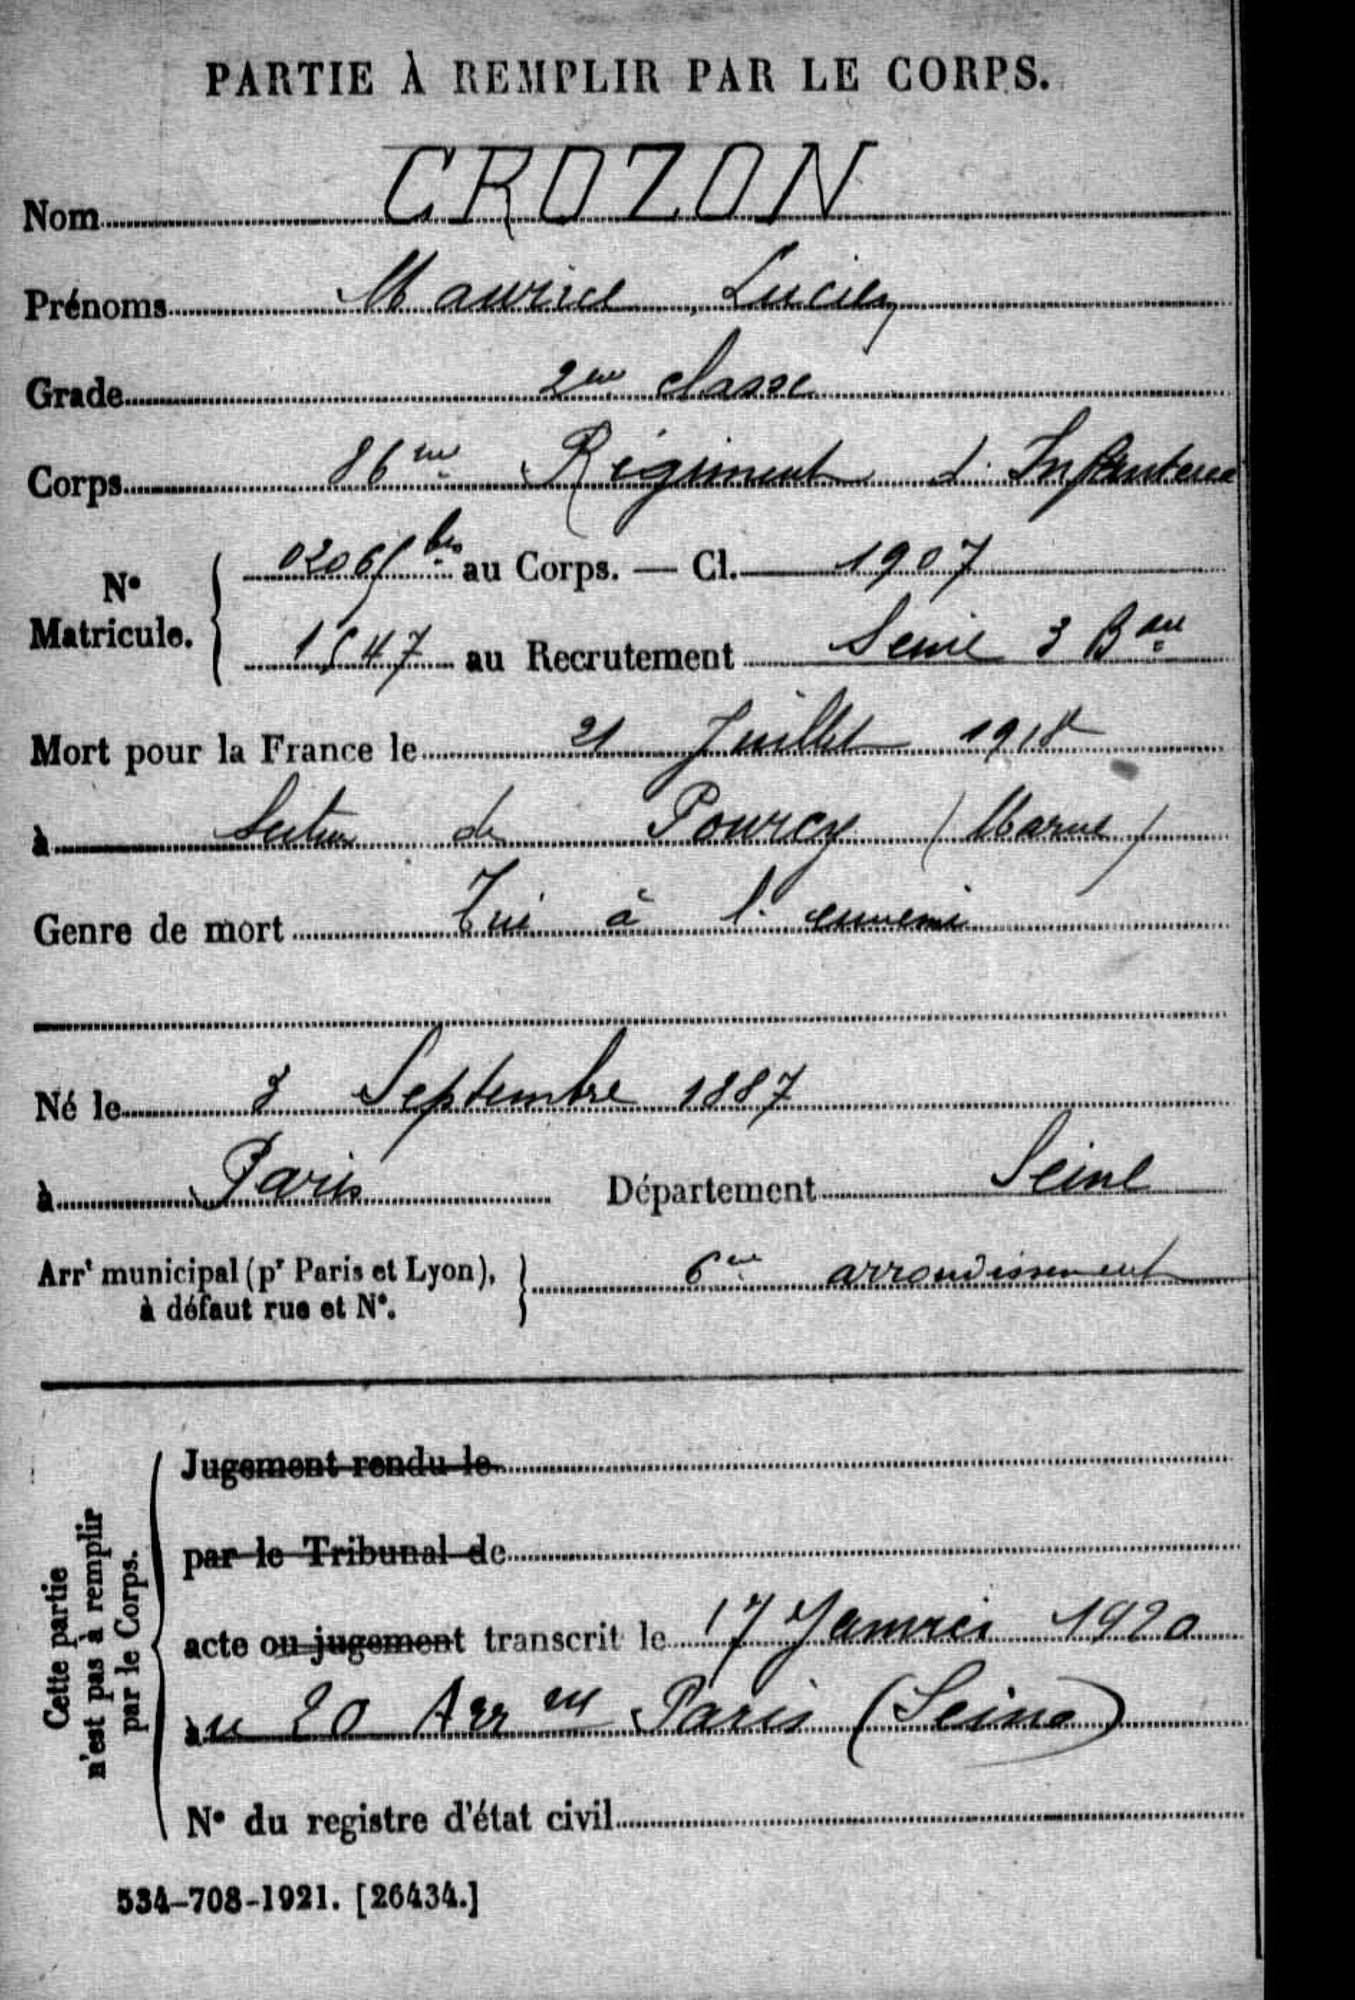 PARTIE À REMPLIR PAR LE CORPS.
Nom CROZON
Prénoms Maurice, Lucien
Grade 2me classe
Corps 86me Régiment d'Infanterie
N° Matricule. 02065 bis au Corps. — Cl. 1907
1547 au Recrutement Seine 3 Bau
Mort pour la France le 21 Juillet 1918
à Secteur de Pourcy (Marne)
Genre de mort Tué à l'ennemi
Né le 3 Septembre 1887
à Paris Département Seine
Arrt municipal (pr Paris et Lyon), à défaut rue et N°. 6me arrondissement
Cette partie n'est pas à remplir par le Corps.
Jugement rendu le
par le Tribunal de
acte ou jugement transcrit le 17 Janvier 1920
au 20 Arr me Paris (Seine)
N° du registre d'état civil
534-708-1921. [26434.]